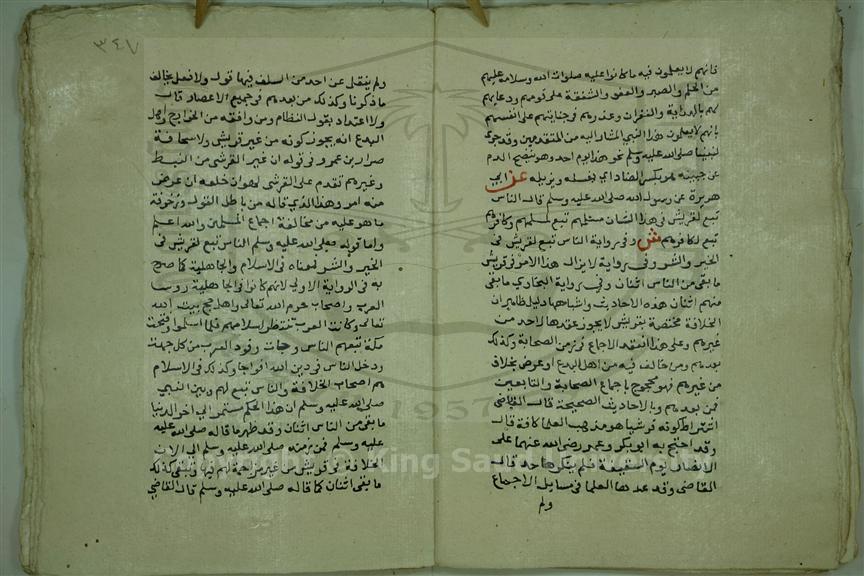 فانهم لا يعلمون فيه ما كانوا عليه صلوات الله وسلامه عليهم
من الحلم والصبر والعفو والشفقة على قومهم ودعايهم
لهم بالهداية والغفران وعذرهم في جنايتهم على انفسهم
بانهم لا يعلمون هذا النبي المشار اليه من المتقدمين وقد جرى
لنبينا صلى الله عليه وسلم نحو هذا يوم احد وهو ينضح الدم
عن جبينه هو بكسر الضاد اي يغسله ويزيله عن ابي
هريرة عن رسول الله صلى الله عليه وسلم قال الناس
تبع لقريش في هذا الشان مسلمهم تبع لمسلمهم وكافرهم
تبع لكافرهم ش وفي رواية الناس تبع لقريش في
الخير والشر وفي رواية لا يزال هذا الامر في قريش
ما بقي من الناس اثنان وفي رواية البخاري ما بقي
منهم اثنان هذه الاحاديث واشباهها دليل ظاهر ان
الخلافة مختصة بقريش لا يجوز عقدها لاحد من
غيرهم وعلى هذا انعقد الاجماع في زمن الصحابة وكذلك
بعدهم ومن خالف فيه من اهل البدع او عرض بخلاف
من غيرهم فهو محجوج باجماع الصحابة والتابعين
فمن بعدهم وبالاحاديث الصحيحة قال القاضي
اشتراط كونه قرشيا هو مذهب العلما كافة قال
وقد احتج به ابو بكر وعمر رضي الله عنهما على
الانصار يوم السقيفة فلم ينكره احد قال
القاضي وقد عدها العلما في مسايل الاجماع
ولم
٣٤٧
ولم ينقل عن احد من السلف فيها قول ولا فعل يخالف
ما ذكرنا وكذلك من بعدهم في جميع الاعصار قال
ولا اعتداد بقول النظام ومن وافقه من الخوارج واهل
البدع انه يجوز كونه من غير قريش ولا سخافة
ضرار بن عمرو في قوله ان غير القرشي من النبط
وغيرهم تقدم على القرشي لهوان خلعه ان عرض
منه امر وهذا الذي قاله من باطل القول وزخرفه
ما هو عليه من مخالفة اجماع المسلمين والله اعلم
واما قوله صلى الله عليه وسلم الناس تبع لقريش في
الخير والشر فمعناه في الاسلام والجاهلية كما صرح
به في الرواية الاولي لانهم كانوا في الجاهلية روسا
العرب واصحاب حرم الله تعالى واهل حج بيت الله
تعالى وكانت العرب تنتظر اسلامهم فلما اسلموا وفتحت
مكة تبعهم الناس وجات وفود العرب من كل جهة
ودخل الناس في دين الله افواجا وكذلك في الاسلام
هم اصحاب الخلافة والناس تبع لهم وبين النبي
صلى الله عليه وسلم ان هذا الحكم مستمر الي اخر الدنيا
ما بقي من الناس اثنان وقد ظهر ما قاله صلى الله عليه
عليه وسلم فمن زمنه صلى الله عليه وسلم الى الان
الخلافة في قريش من غير مزاحمة لهم فيها وتبقى كذلك
ما بقي اثنان كما قاله صلى الله عليه وسلم قال القاضي
1957
Copyright © King Saud University